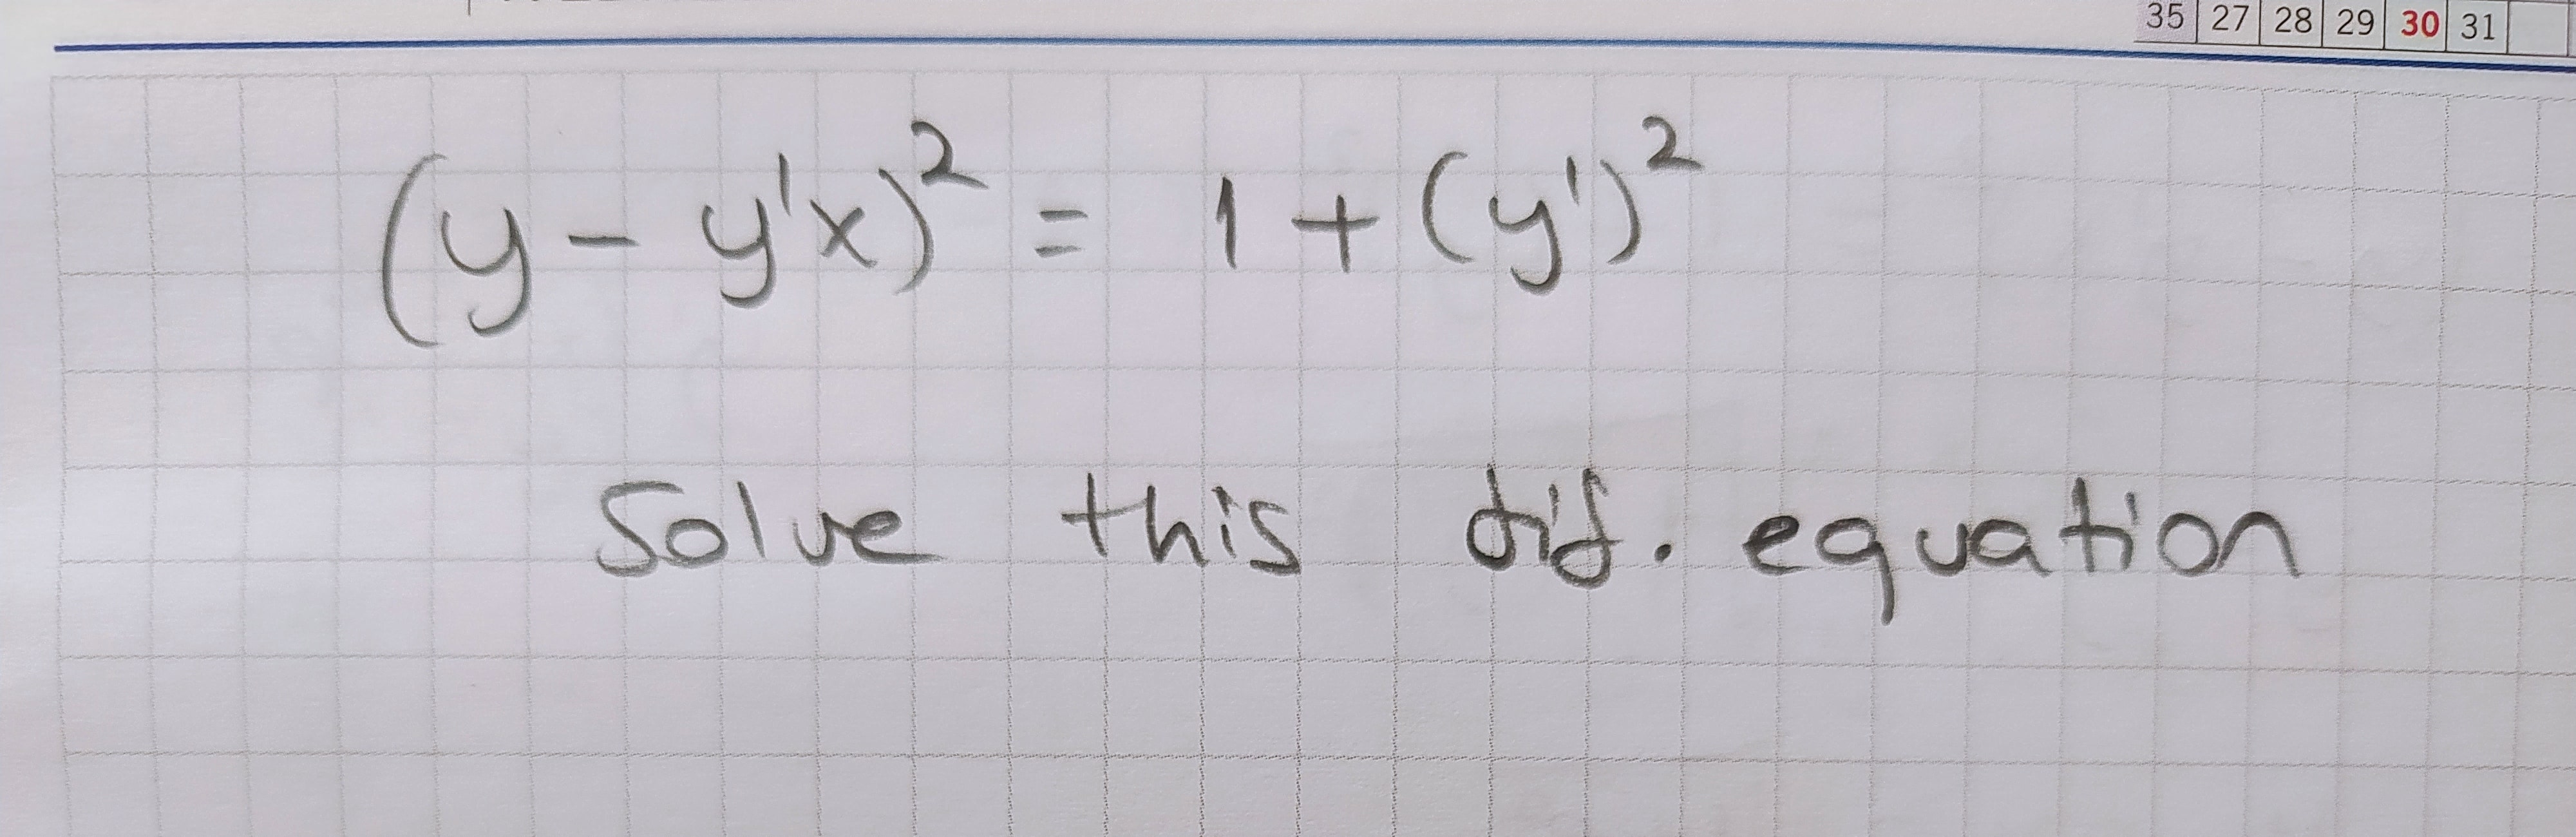 35 27 28 29 30 31
(y - y'x)² = 1 + (y')²
Solve this dif. equation